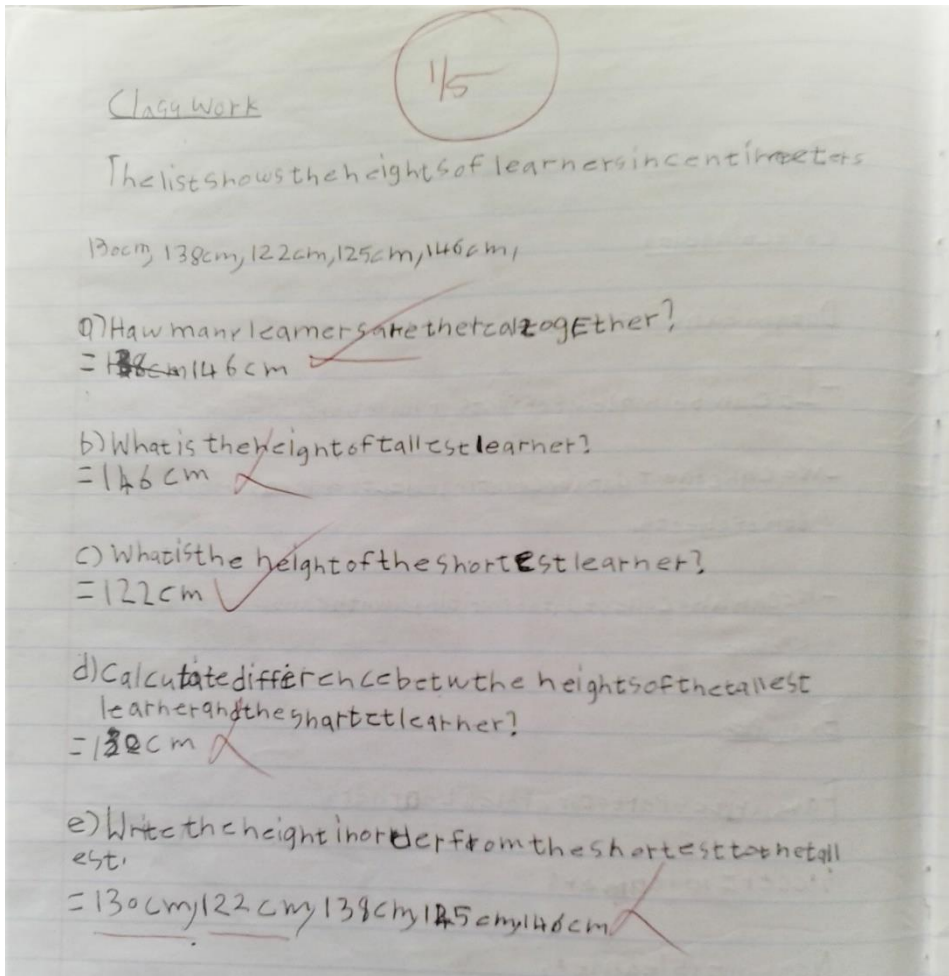 1/5
Class work
The list shows the heights of learners in centimeters
130cm, 138cm, 122cm, 125cm, 146cm,
a) Haw many learners are there altogEther?
= 146cm
b) What is the height of tallest learner?
= 146cm
c) What is the height of the shortEst learner?
= 122cm
d) Calcutate difference betw the heights of the tallest
learner and the shartet learner?
= cm
e) Write the height in order from the shortest tothe tall
est.
= 130cm, 122cm, 138cm, 125cm, 146cm